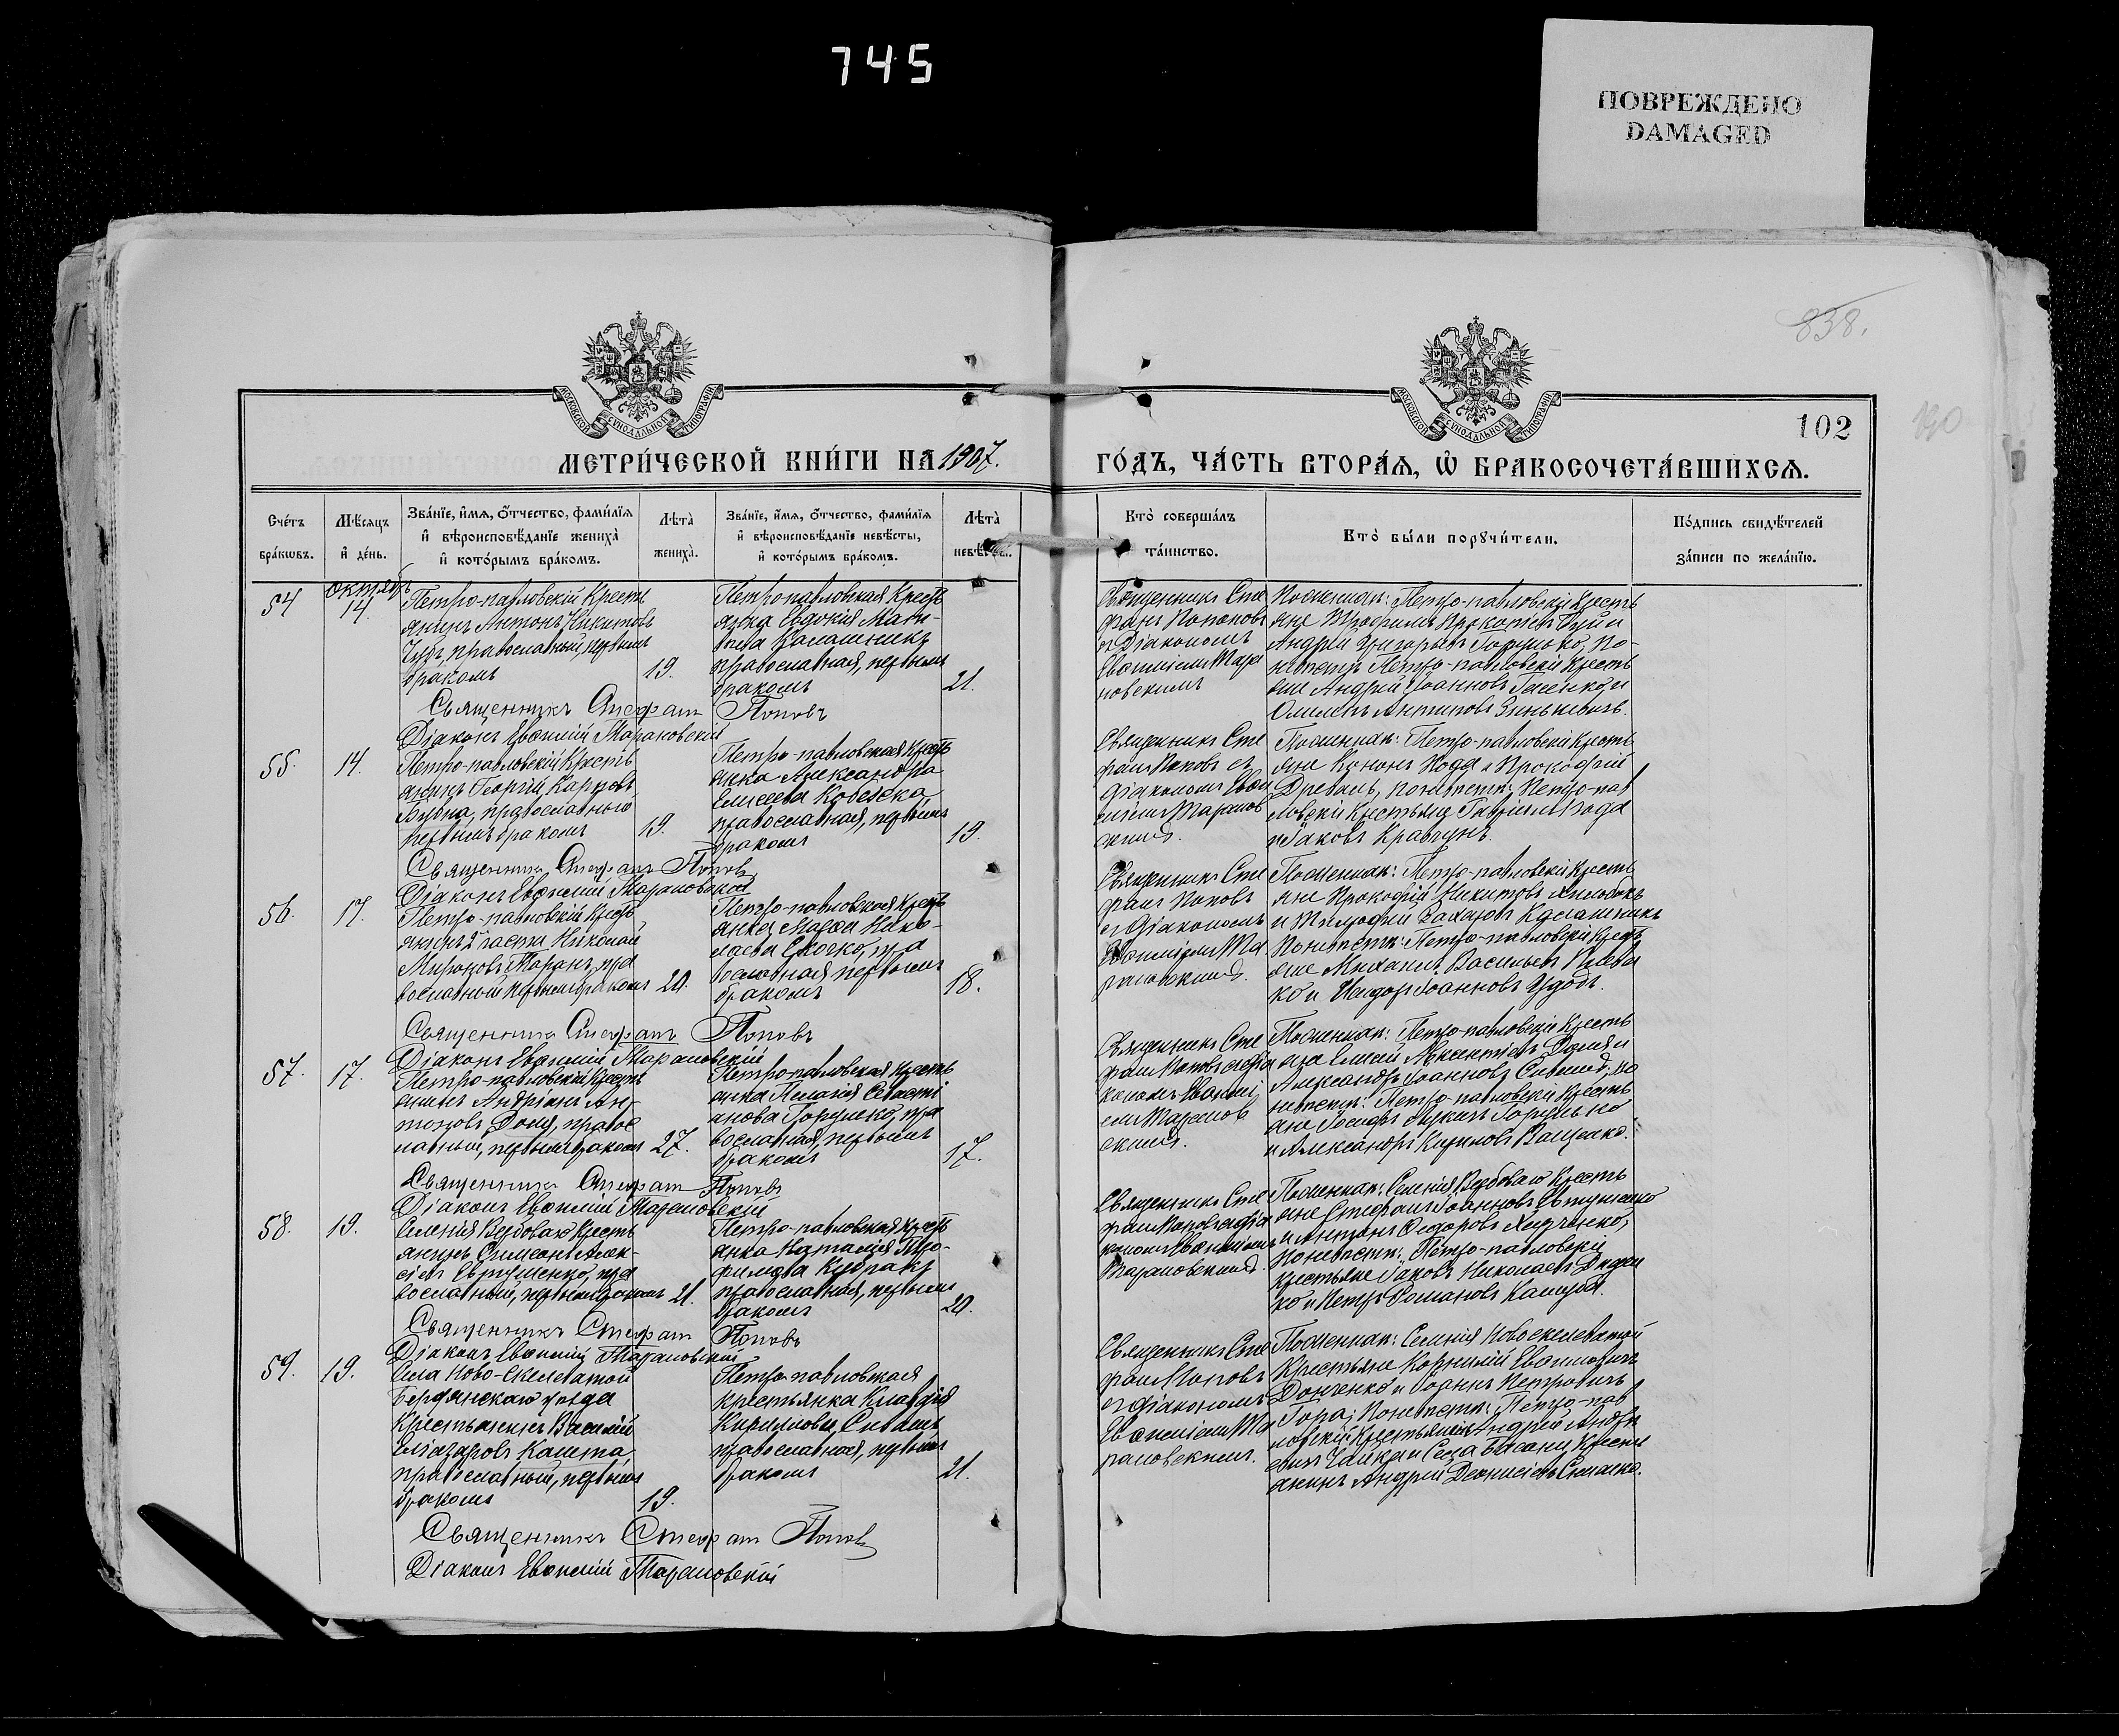 745
ПОВРЕЖДЕНО
DAMAGED
838.
102
МОСКОВСКОЙ СѴНОДАЛЬНОЙ ТИПОГРАФІИ
МОСКОВСКОЙ СѴНОДАЛЬНОЙ ТИПОГРАФІИ
МЕТРИ́ЧЕСКОЙ КНИ́ГИ НА 1907.
ГО́ДЪ, ЧА́СТЬ ВТОРА́Ѧ, Ѡ БРАКОСОЧЕТА́ВШИХСѦ.
Сче́тъ бра́кѡвъ.
Мѣ́сяцъ и де́нь.
Зва́нїе, и́мѧ, ѻ҆́тчество, фами́лїѧ
и҆ вѣроисповѣ́данїе жениха̀
и҆ кото́рымъ бра́комъ.
Лѣта̀ жениха̀.
Зва́нїе, и́мѧ, ѻ҆́тчество, фами́лїѧ
и҆ вѣроисповѣ́данїе невѣ́сты,
и҆ кото́рымъ бра́комъ.
Лѣта̀
Кто̀ соверша́лъ
та́инство.
Кто̀ бы́ли порꙋчи́тели.
По́дпись свидѣ́телей
за́писи по жела́нїю.
54
Октябр
14.
Петро-павловскій Кресть
янинъ Антонъ Никитовъ
православный, первымъ
бракомъ
19.
Петро-павловская Кресть
янка Евдокія Мат-
Калашникъ
православная, первымъ
бракомъ
21.
Священникъ Сте
фанъ Поповъ
съ Діакономъ
Евѳиміемъ Тара
новскимъ
По женихѣ: Петро-павловскіе Кресть
яне Трофимъ Прокопіевъ и
Андрей Григорьевъ Горпунько, По
невѣстѣ Петро-павловскіе Кресть
яне Андрей Іоанновъ и
Антиповъ Зинькевичъ.
Священникъ Стефанъ Поповъ
Діаконъ Евѳимій Тарановскій
55.
14.
Петро-павловскій Кресть
янинъ Георгій Карповъ
православный
первымъ бракомъ
19.
Петро-павловская Кресть
янка Александра
Елисеева
православная, первымъ
бракомъ
19.
Священникъ Сте
фанъ Поповъ съ
діакономъ Евѳи
міемъ Таранов
скимъ.
По женихѣ: Петро-павловскіе Кресть
яне Кононъ и Прокофій
по невѣстѣ: Петро-пав
ловскіе Крестьяне Гавріилъ
и Іаковъ Кравчунъ.
Священникъ Стефанъ Поповъ
Діаконъ Евѳимій Тарановскій
56.
17.
Петро-павловскій Кресть
янинъ 2 части Николай
Мироновъ Таранъ, пра
вославный первымъ бракомъ
20.
Петро-павловская Кресть
янка Марѳа Нико-
лаева пра
вославная, первымъ
бракомъ
18.
Священникъ Сте
фанъ Поповъ
съ діакономъ
Евѳиміемъ Та
рановскимъ.
По женихѣ: Петро-павловскіе Кресть
яне Прокофій Никитовъ
и Тимофей Захаровъ Калашникъ
По невѣстѣ: Петро-павловскіе Кресть
яне Михаилъ Васильевъ
ко и Исидоръ Іоанновъ Удодъ.
Священникъ Стефанъ Поповъ
Діаконъ Евѳимій Тарановскій
57.
17.
Петро-павловскій Кресть
янинъ Андріанъ Ан-
тоновъ Доля, правос
лавный, первымъ бракомъ
27.
Петро-павловская Кресть
янка Пелагія Севасті
анова Горпунько, пра
вославная, первымъ
бракомъ
17.
Священникъ Сте
фанъ Поповъ съ діа
кономъ Евѳимі
емъ Таранов
скимъ.
По женихѣ: Петро-павловскіе Кресть
яне Елисей Авксентіевъ Доля и
Александръ Іоанновъ по
невѣстѣ: Петро-павловскіе Кресть
яне Іосифъ Лукичъ Горпунько
и Александръ Кириловъ Ващенко.
Священникъ Стефанъ Поповъ
Діаконъ Евѳимій Тарановскій
58.
19.
Селенія Вербоваго Кресть
янинъ Симеонъ Алек-
сіевъ Евтушенко, пра
вославный, первымъ бракомъ
21.
Петро-павловская Кресть
янка Наталія Тро-
фимова
православная, первымъ
бракомъ
20.
Священникъ Сте
фанъ Поповъ съ діа
кономъ Евѳиміемъ
Тарановскимъ.
По женихѣ: Селенія Вербоваго Кресть
яне Стефанъ Іоанновъ Евтушенко
и Антонъ Ѳедоровъ Харченко,
По невѣстѣ: Петро-павловскіе
крестьяне Іаковъ Николаевъ
ко и Петръ Романовъ
Священникъ Стефанъ Поповъ
Діаконъ Евѳимій Тарановскій
59.
19.
Села Ново-Скелеватой
Бердянскаго уѣзда
Крестьянинъ Василій
православный, первымъ
бракомъ
19.
Петро-павловская
крестьянка Клавдія
Кириллова
православная, первымъ
бракомъ
21.
Священникъ Сте
фанъ Поповъ
съ діакономъ
Евѳиміемъ Та
рановскимъ.
По женихѣ: Селенія Новоскелеватой
Крестьяне Корнилій Евѳимовичъ
Донченко и Іоаннъ Петровичъ
Гора; По невѣстѣ: Петро-пав
ловскій Крестьянинъ Андрей Андре
евичъ Чайка и Села Басани Кресть
янинъ Андрей Діонисіевъ
Священникъ Стефанъ Поповъ
Діаконъ Евѳимій Тарановскій